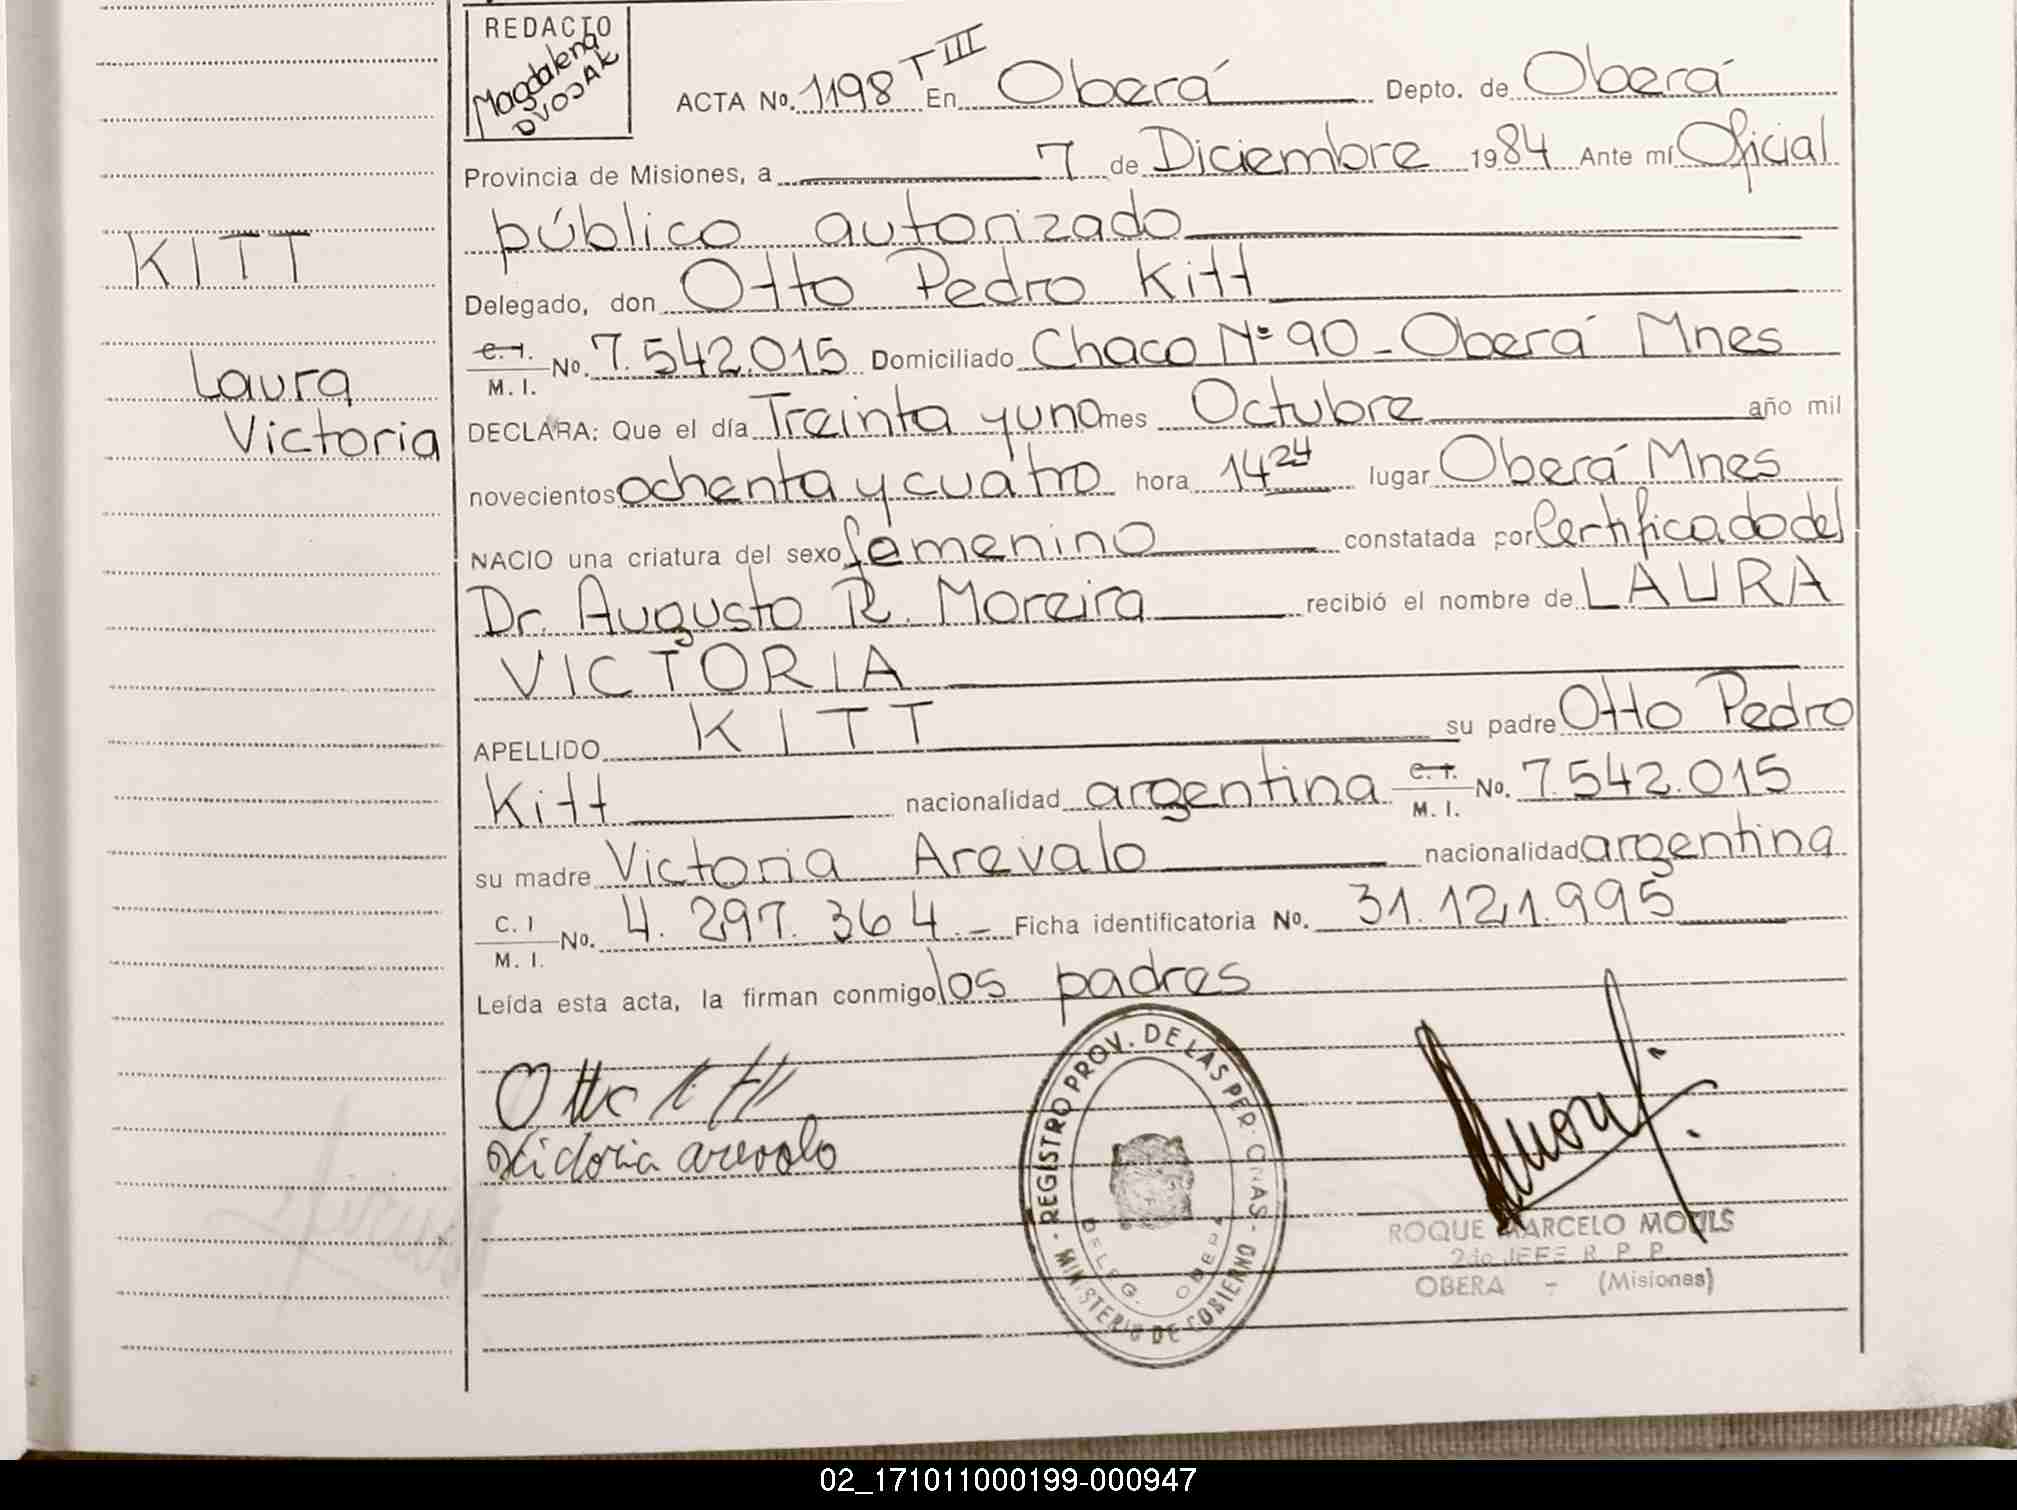 REDACTO
Magdalena
DVOJAK
ACTA No. 1198 T III En Oberá Depto. de Oberá
Provincia de Misiones, a 7 de Diciembre 1984 Ante mí Oficial
público autorizado
KITT
Delegado, don Otto Pedro Kitt
C.I. M. I. No. 7.542.015 Domiciliado Chaco Nº 90 - Oberá Mnes
Laura
Victoria
DECLARA: Que el día Treinta y uno mes Octubre año mil
novecientos ochenta y cuatro hora 14 24 lugar Oberá Mnes
NACIO una criatura del sexo femenino constatada por Certificado del
Dr. Augusto R. Moreira recibió el nombre de LAURA
VICTORIA
APELLIDO KITT su padre Otto Pedro
Kitt nacionalidad argentina C.I. M. I. No. 7.542.015
su madre Victoria Arevalo nacionalidad argentina
C. I M. I. No. 4.297.364.- Ficha identificatoria No. 31.121.995
Leída esta acta, la firman conmigo los padres
Otto Kitt
Victoria arevalo
REGISTRO PROV. DE LAS PERSONAS - MINISTERIO DE GOBIERNO -
DELEG. OBERA
ROQUE MARCELO
2do JEFE R. P. P.
OBERA - (Misiones)
02_171011000199-000947